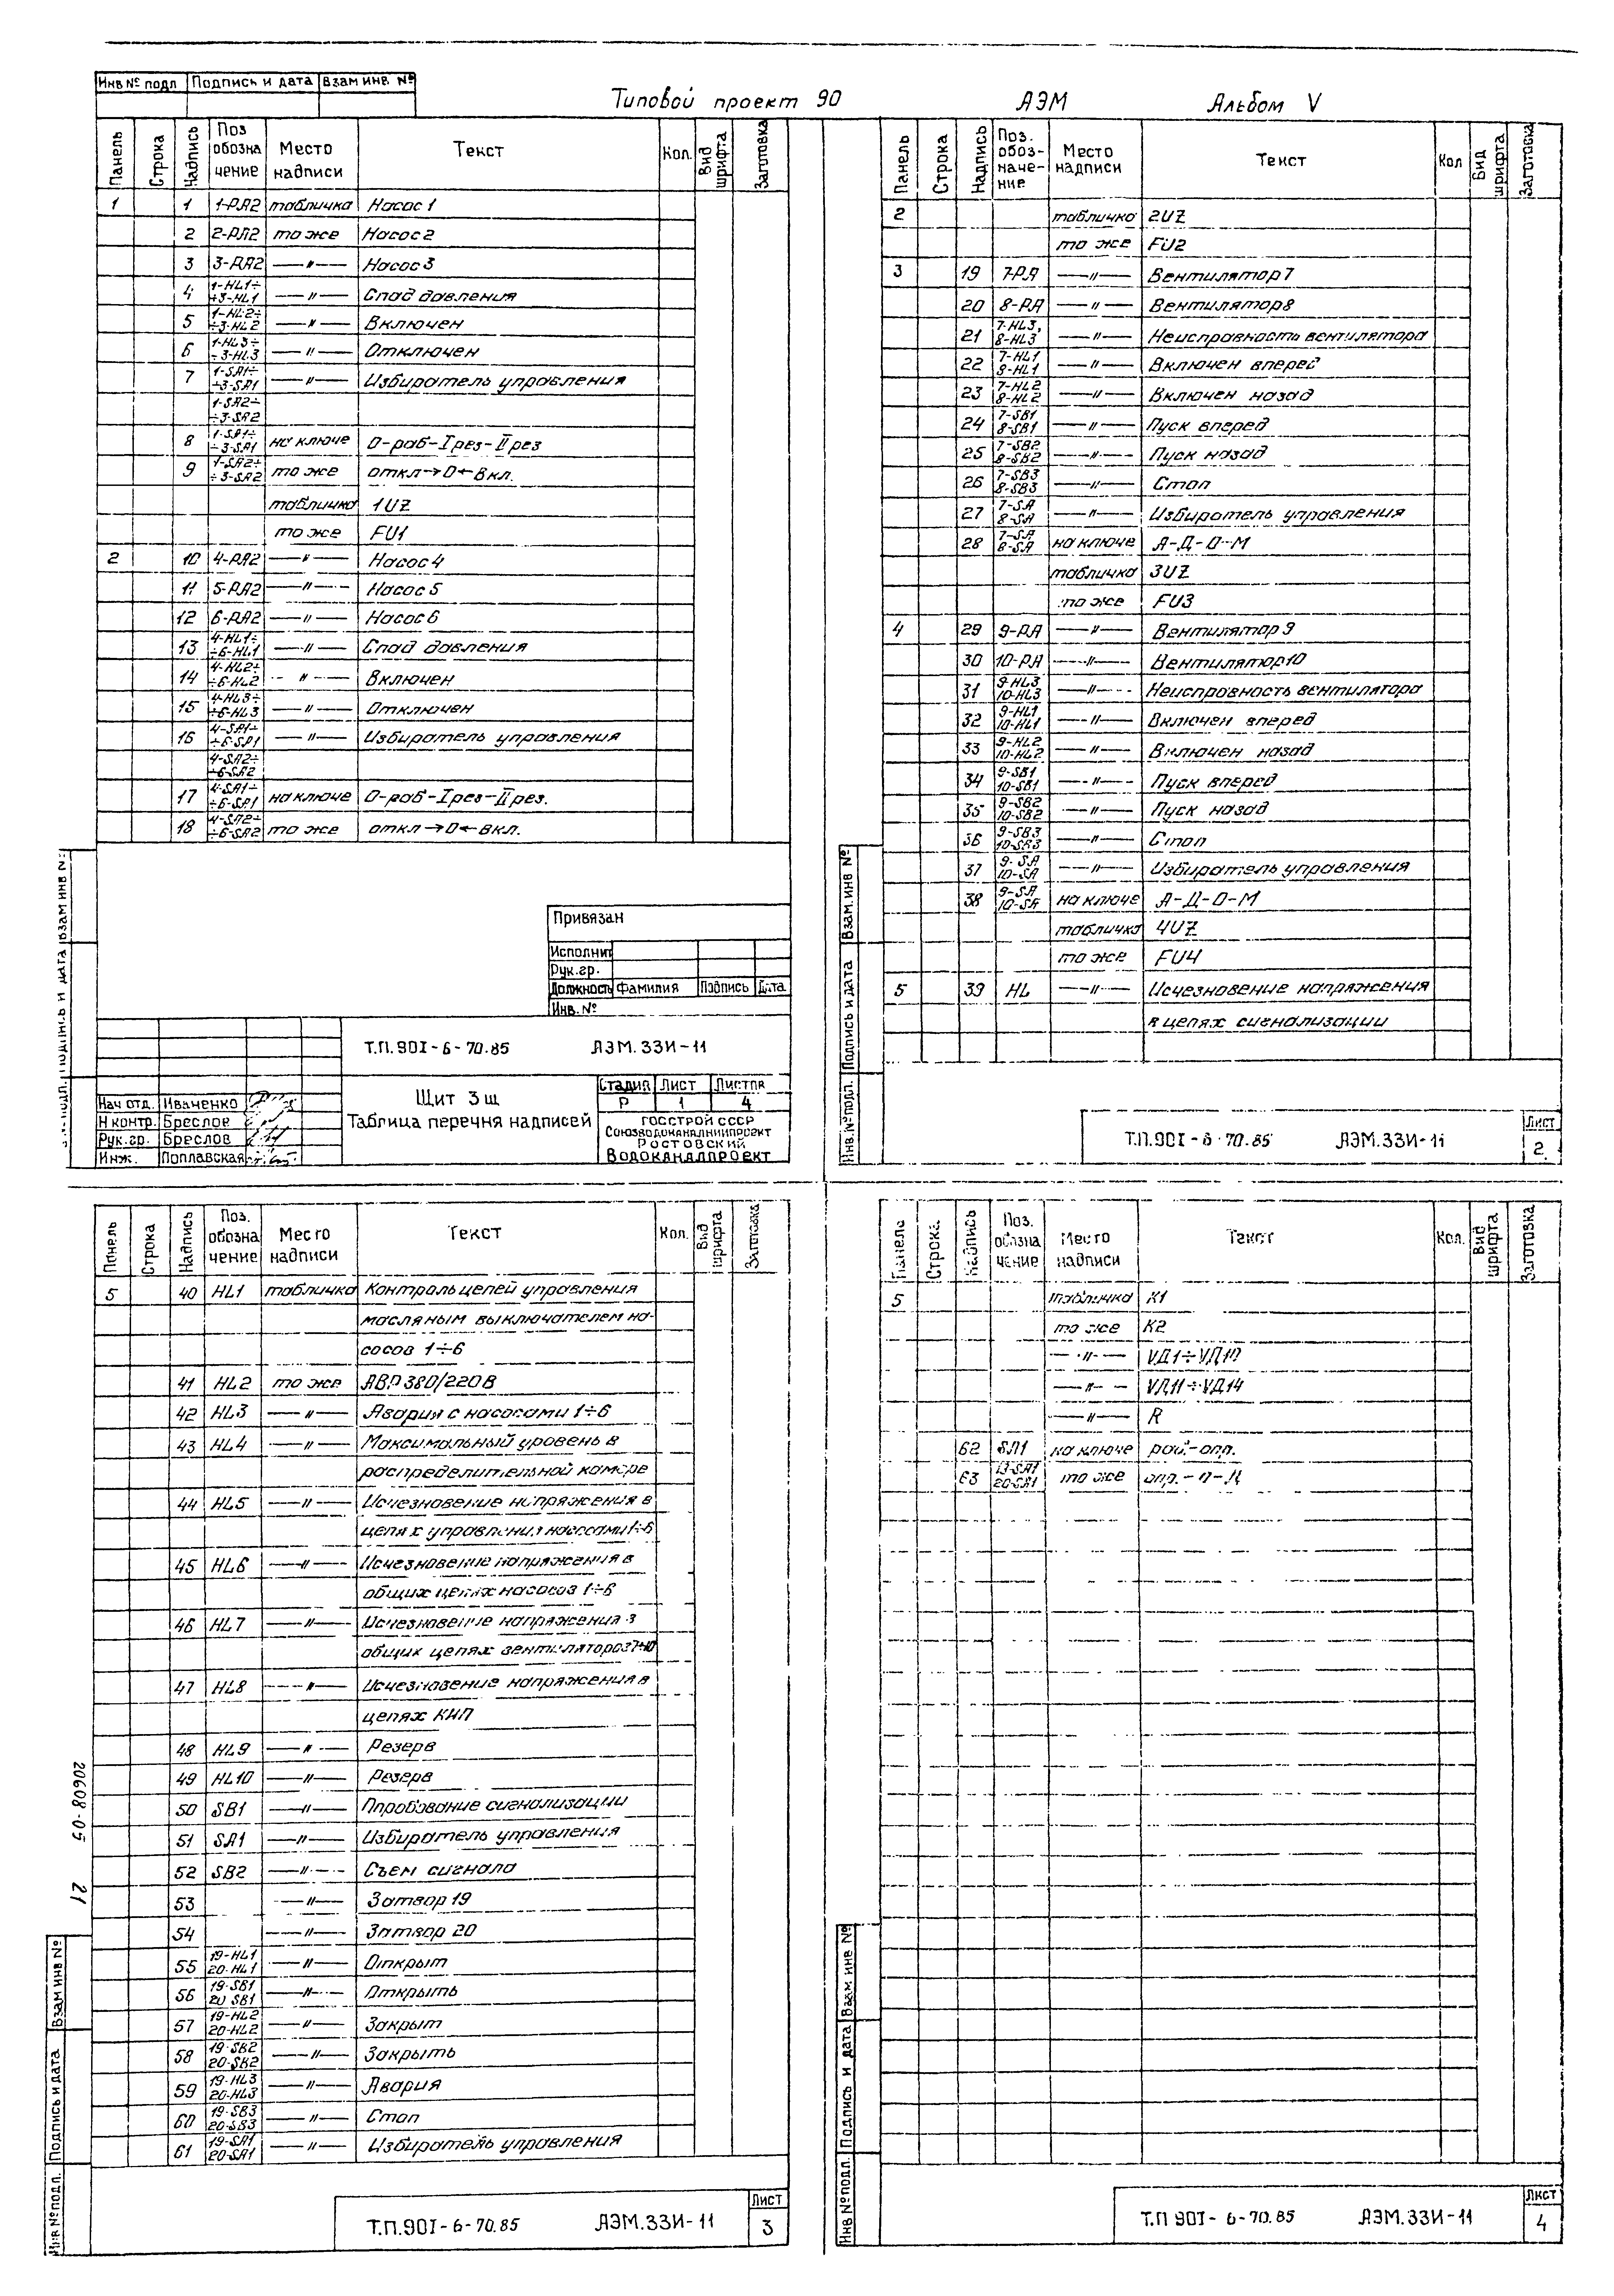 Инв № подл | Подпись и дата | Взам инв. №
Типовой проект 90 АЭМ Альбом V
Панель | Строка | Надпись | Поз обозна чение | Место надписи | Текст | Кол. | Вид шрифта | Заготовка
1 | 1 | 1-РА2 | табличка | Насос 1
2 | 2-РА2 | то же | Насос 2
3 | 3-РА2 | —〃— | Насос 3
4 | 1-HL1÷ ÷3-HL1 | —〃— | Спад давления
5 | 1-HL2÷ ÷3-HL2 | —〃— | Включен
6 | 1-HL3÷ ÷3-HL3 | —〃— | Отключен
7 | 1-SA1÷ ÷3-SA1 | —〃— | Избиратель управления
1-SA2÷ ÷3-SA2
8 | 1-SA1÷ ÷3-SA1 | на ключе | О-раб-Iрез-IIрез
9 | 1-SA2÷ ÷3-SA2 | то же | откл→О←Вкл.
табличка | 1UZ
то же | FU1
2 | 10 | 4-РА2 | —〃— | Насос 4
11 | 5-РА2 | —〃— | Насос 5
12 | 6-РА2 | —〃— | Насос 6
13 | 4-HL1÷ ÷6-HL1 | —〃— | Спад давления
14 | 4-HL2÷ ÷6-HL2 | —〃— | Включен
15 | 4-HL3÷ ÷6-HL3 | —〃— | Отключен
16 | 4-SA1÷ ÷6-SA1 | —〃— | Избиратель управления
4-SA2÷ ÷6-SA2
17 | 4-SA1÷ ÷6-SA1 | на ключе | О-раб-Iрез-IIрез.
18 | 4-SA2÷ ÷6-SA2 | то же | откл→О←вкл.
Привязан
Исполнит
Рук.гр.
Должность | Фамилия | Подпись | Дата
Инв. №
Т.П.901-6-70.85 АЭМ.33И-11
Щит 3щ
Таблица перечня надписей
Стадия | Лист | Листов
Р | 1 | 4
ГОССТРОЙ СССР
Союзводоканалниипроект
Ростовский
Водоканалпроект
Нач отд. | Иваченко
Н контр. | Бреслов
Рук.гр. | Бреслов
Инж. | Поплавская
Подпись и дата | Взам инв №
Панель | Строка | Надпись | Поз. обоз- наче- ние | Место надписи | Текст | Кол | Вид шрифта | Заготовка
2 | табличка | 2UZ
то же | FU2
3 | 19 | 7-РА | —〃— | Вентилятор 7
20 | 8-РА | —〃— | Вентилятор 8
21 | 7-HL3, 8-HL3 | —〃— | Неисправность вентилятора
22 | 7-HL1 8-HL1 | —〃— | Включен вперед
23 | 7-HL2 8-HL2 | —〃— | Включен назад
24 | 7-SB1 8-SB1 | —〃— | Пуск вперед
25 | 7-SB2 8-SB2 | —〃— | Пуск назад
26 | 7-SB3 8-SB3 | —〃— | Стоп
27 | 7-SA 8-SA | —〃— | Избиратель управления
28 | 7-SA 8-SA | на ключе | А-Д-О-М
табличка | 3UZ
то же | FU3
4 | 29 | 9-РА | —〃— | Вентилятор 9
30 | 10-РА | —〃— | Вентилятор 10
31 | 9-HL3 10-HL3 | —〃— | Неисправность вентилятора
32 | 9-HL1 10-HL1 | —〃— | Включен вперед
33 | 9-HL2 10-HL2 | —〃— | Включен назад
34 | 9-SB1 10-SB1 | —〃— | Пуск вперед
35 | 9-SB2 10-SB2 | —〃— | Пуск назад
36 | 9-SB3 10-SB3 | —〃— | Стоп
37 | 9-SA 10-SA | —〃— | Избиратель управления
38 | 9-SA 10-SA | на ключе | А-Д-О-М
табличка | 4UZ
то же | FU4
5 | 39 | HL | —〃— | Исчезновение напряжения
в цепях сигнализации
Инв.№подл. | Подпись и дата | Взам.инв №
Т.П.901-6-70.85 АЭМ.33И-11
Лист
2.
Панель | Строка | Надпись | Поз. обозна чение | Место надписи | Текст | Кол. | Вид шрифта | Заготовка
5 | 40 | HL1 | табличка | Контроль цепей управления
масляным выключателем на-
сосов 1÷6
41 | HL2 | то же | АВР 380/220В
42 | HL3 | —〃— | Авария с насосами 1÷6
43 | HL4 | —〃— | Максимальный уровень в
распределительной камере
44 | HL5 | —〃— | Исчезновение напряжения в
цепях управления насосами 1÷6
45 | HL6 | —〃— | Исчезновение напряжения в
общих цепях насосов 1÷6
46 | HL7 | —〃— | Исчезновение напряжения в
общих цепях вентиляторов 7÷10
47 | HL8 | —〃— | Исчезновение напряжения в
цепях КИП
48 | HL9 | —〃— | Резерв
49 | HL10 | —〃— | Резерв
50 | SB1 | —〃— | Опробование сигнализации
51 | SA1 | —〃— | Избиратель управления
52 | SB2 | —〃— | Съем сигнала
53 | —〃— | Затвор 19
54 | —〃— | Затвор 20
55 | 19-HL1 20-HL1 | —〃— | Открыт
56 | 19-SB1 20-SB1 | —〃— | Открыть
57 | 19-HL2 20-HL2 | —〃— | Закрыт
58 | 19-SB2 20-SB2 | —〃— | Закрыть
59 | 19-HL3 20-HL3 | —〃— | Авария
60 | 19-SB3 20-SB3 | —〃— | Стоп
61 | 19-SA1 20-SA1 | —〃— | Избиратель управления
20608-05 21
Инв №подл. | Подпись и дата | Взам инв №
Т.П.901-6-70.85 АЭМ.33И-11
Лист
3
Панель | Строка | Надпись | Поз. обозна чение | Место надписи | Текст | Кол. | Вид шрифта | Заготовка
5 | табличка | К1
то же | К2
—〃— | VД1÷VД10
—〃— | VД11÷VД14
—〃— | R
62 | SA1 | на ключе | раб.-опр.
63 | 19-SA1 20-SA1 | то же | опр.-О-Д
Инв №подл. | Подпись и дата | Взам инв №
Т.П 901-6-70.85 АЭМ.33И-11
Лист
4